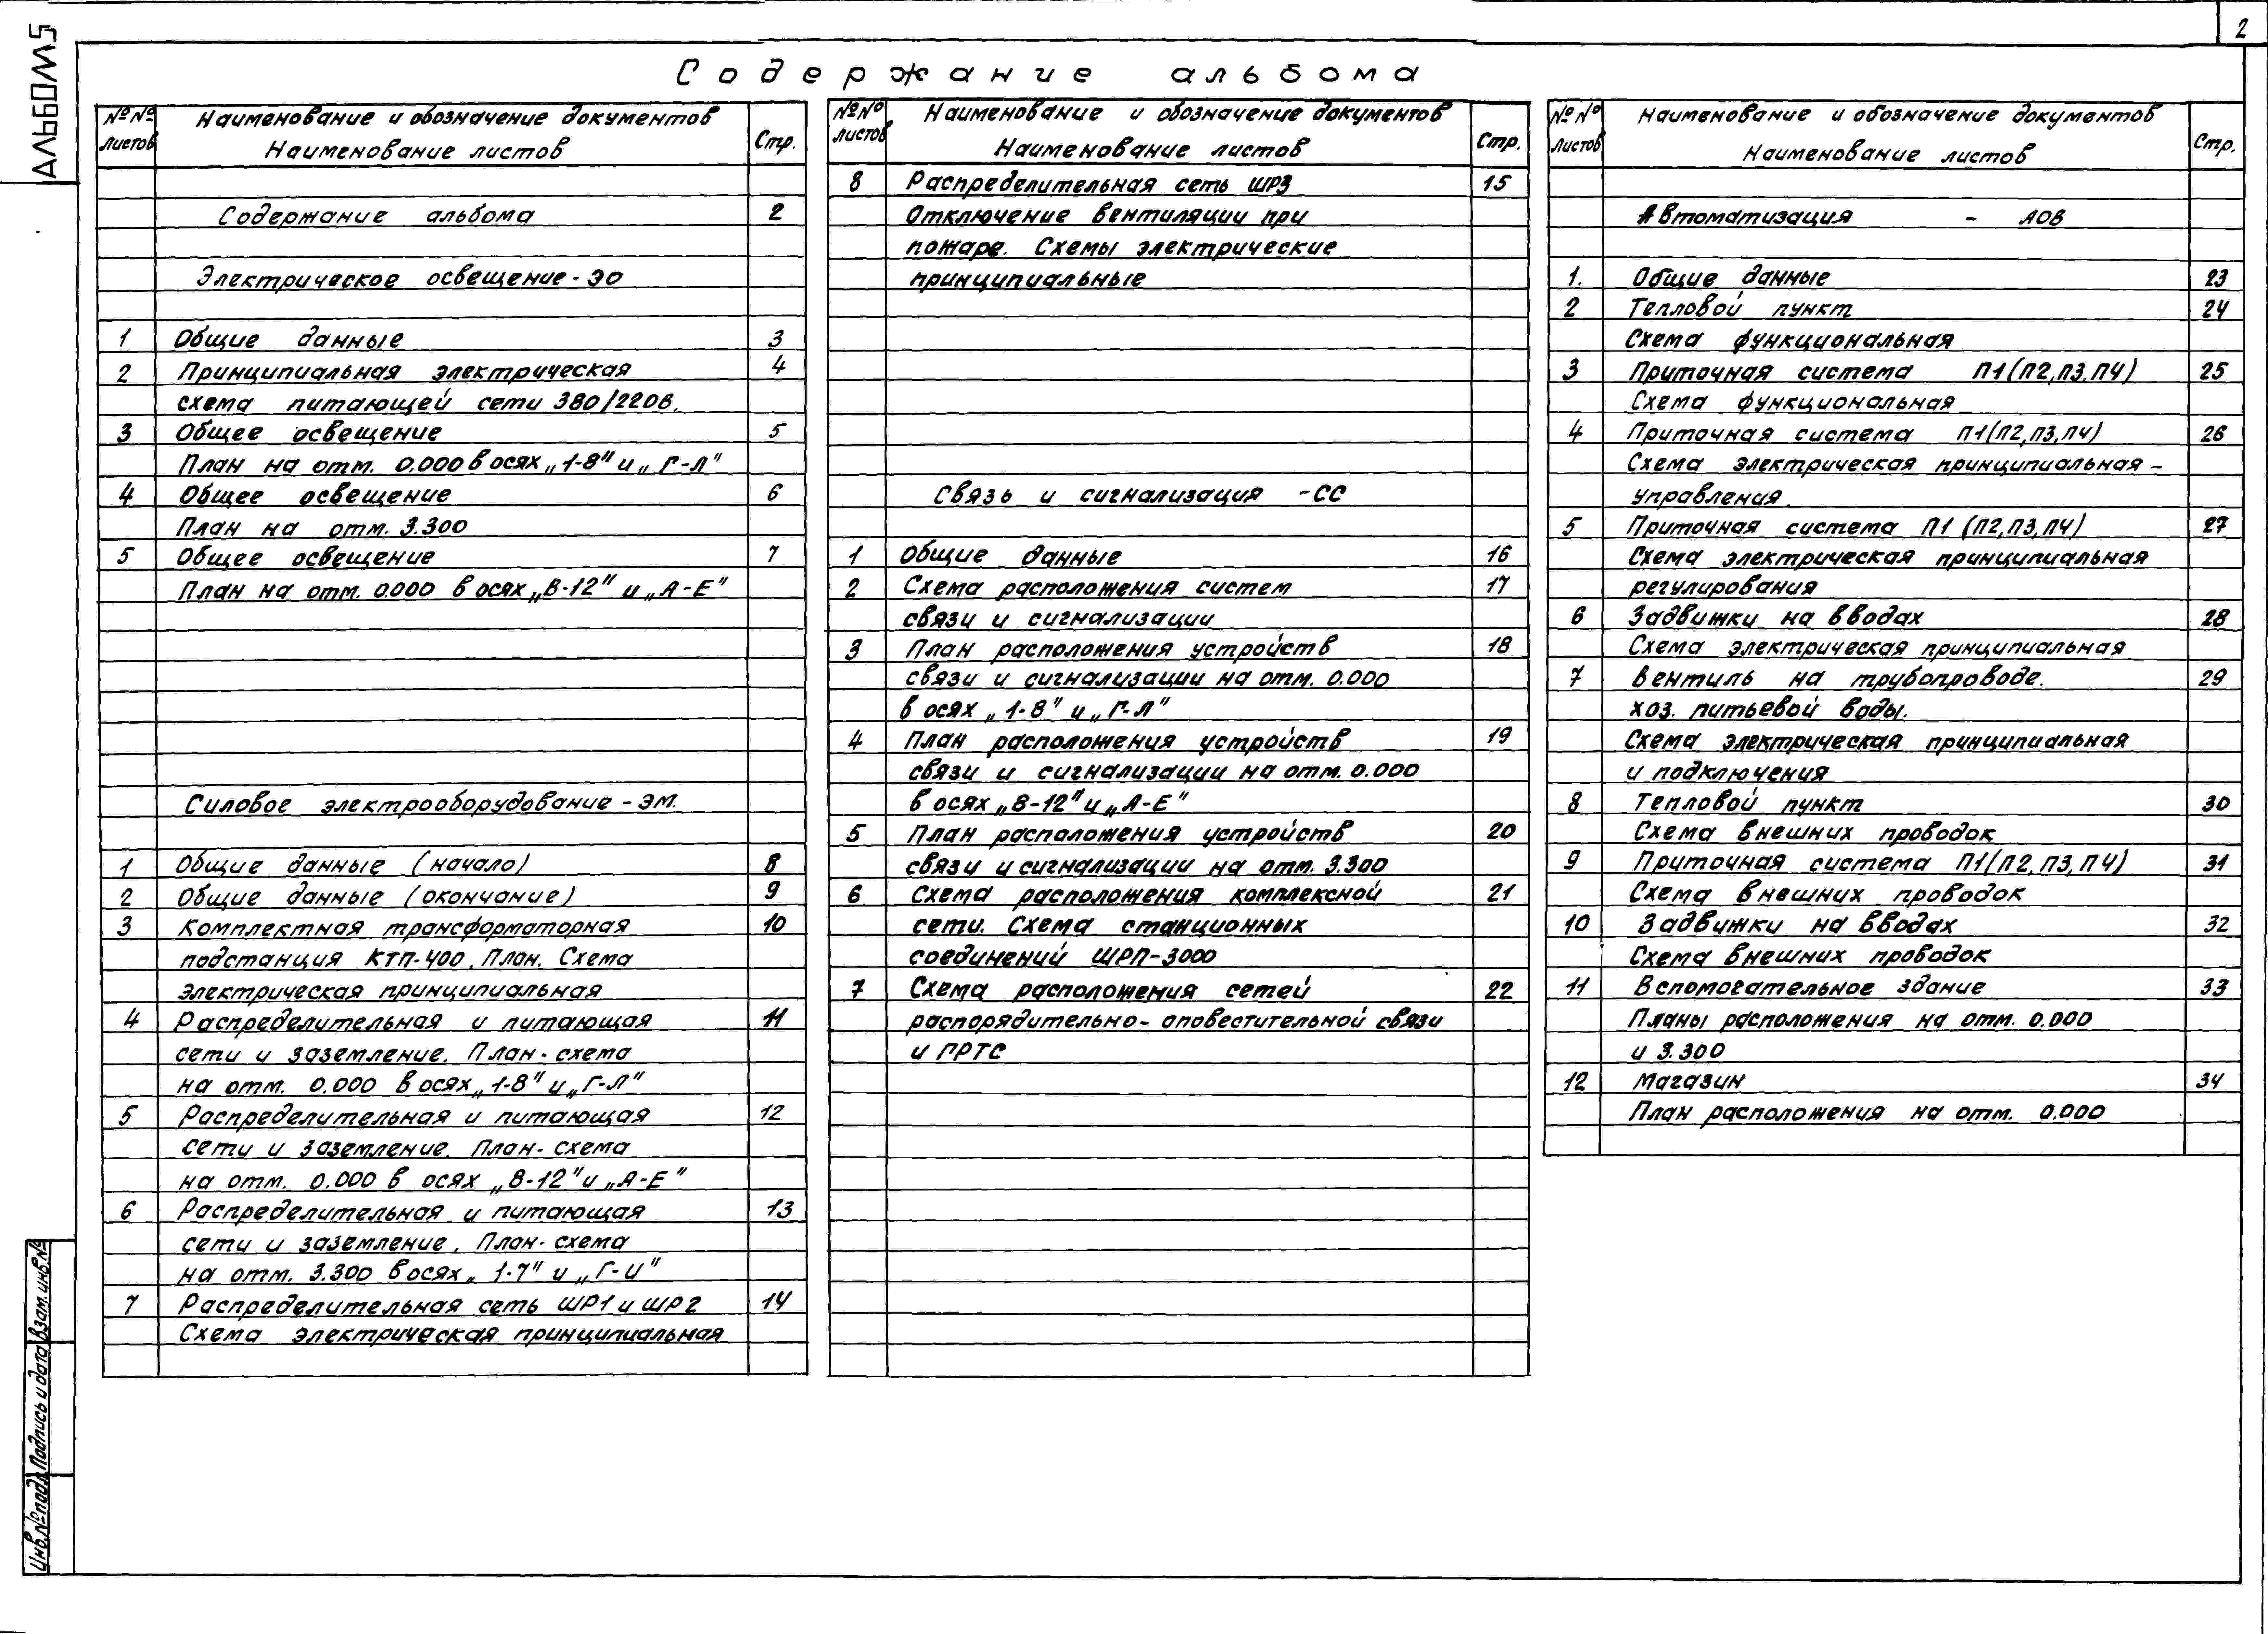 2
АЛЬБОМ 5
Содержание альбома
№№ листов
Наименование и обозначение документов
Наименование листов
Стр.
Содержание альбома 2
Электрическое освещение - ЭО
1 Общие данные 3
2 Принципиальная электрическая 4
схема питающей сети 380/220в.
3 Общее освещение 5
План на отм. 0.000 в осях „1-8" и „Г-Л"
4 Общее освещение 6
План на отм. 3.300
5 Общее освещение 7
План на отм. 0.000 в осях „8-12" и „А-Е"
Силовое электрооборудование - ЭМ.
1 Общие данные (начало) 8
2 Общие данные (окончание) 9
3 Комплектная трансформаторная 10
подстанция КТП-400. План. Схема
электрическая принципиальная
4 Распределительная и питающая 11
сети и заземление. План-схема
на отм. 0.000 в осях „1-8" и „Г-Л"
5 Распределительная и питающая 12
сети и заземление. План-схема
на отм. 0.000 в осях „8-12" и „А-Е"
6 Распределительная и питающая 13
сети и заземление. План-схема
на отм. 3.300 в осях „1-7" и „Г-И"
7 Распределительная сеть ШР1 и ШР2 14
Схема электрическая принципиальная
№№ листов
Наименование и обозначение документов
Наименование листов
Стр.
8 Распределительная сеть ШР3 15
Отключение вентиляции при
пожаре. Схемы электрические
принципиальные
Связь и сигнализация - СС
1 Общие данные 16
2 Схема расположения систем 17
связи и сигнализации
3 План расположения устройств 18
связи и сигнализации на отм. 0.000
в осях „1-8" и „Г-Л"
4 План расположения устройств 19
связи и сигнализации на отм. 0.000
в осях „8-12" и „А-Е"
5 План расположения устройств 20
связи и сигнализации на отм. 3.300
6 Схема расположения комплексной 21
сети. Схема станционных
соединений ШРП-3000
7 Схема расположения сетей 22
распорядительно-оповестительной связи
и ПРТС
№№ листов
Наименование и обозначение документов
Наименование листов
Стр.
Автоматизация - АОВ
1. Общие данные 23
2 Тепловой пункт 24
Схема функциональная
3 Приточная система П1 (П2, П3, П4) 25
Схема функциональная
4 Приточная система П1 (П2, П3, П4) 26
Схема электрическая принципиальная -
управления.
5 Приточная система П1 (П2, П3, П4) 27
Схема электрическая принципиальная
регулирования
6 Задвижки на вводах 28
Схема электрическая принципиальная
7 Вентиль на трубопроводе. 29
хоз. питьевой воды.
Схема электрическая принципиальная
и подключения
8 Тепловой пункт 30
Схема внешних проводок
9 Приточная система П1 (П2, П3, П4) 31
Схема внешних проводок
10 Задвижки на вводах 32
Схема внешних проводок
11 Вспомогательное здание 33
Планы расположения на отм. 0.000
и 3.300
12 Магазин 34
План расположения на отм. 0.000
Взам. инв.№
Подпись и дата
Инв.№подл.